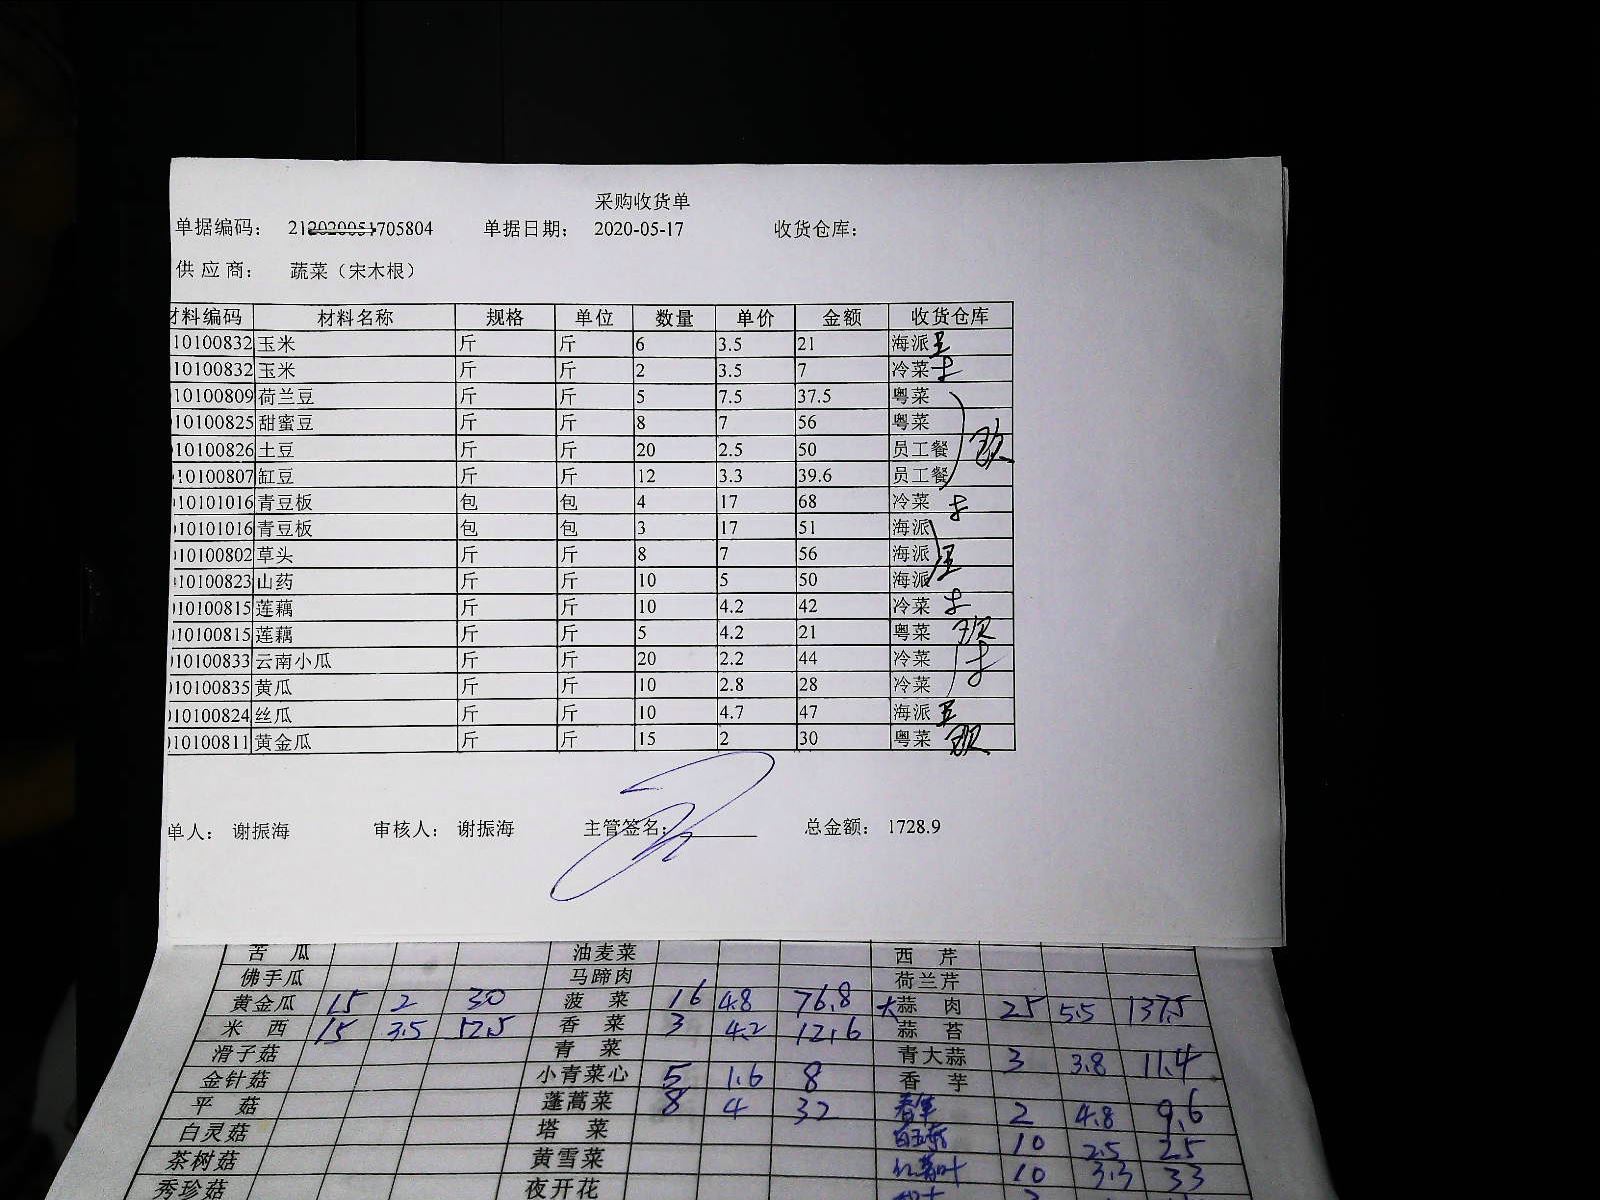 采购收货单
单据编码： 212020051705804 单据日期： 2020-05-17 收货仓库：
供 应 商： 蔬菜（宋木根）
材料编码 材料名称 规格 单位 数量 单价 金额 收货仓库
10100832 玉米 斤 斤 6 3.5 21 海派
10100832 玉米 斤 斤 2 3.5 7 冷菜
10100809 荷兰豆 斤 斤 5 7.5 37.5 粤菜
10100825 甜蜜豆 斤 斤 8 7 56 粤菜
10100826 土豆 斤 斤 20 2.5 50 员工餐
10100807 缸豆 斤 斤 12 3.3 39.6 员工餐
10101016 青豆板 包 包 4 17 68 冷菜
10101016 青豆板 包 包 3 17 51 海派
10100802 草头 斤 斤 8 7 56 海派
10100823 山药 斤 斤 10 5 50 海派
10100815 莲藕 斤 斤 10 4.2 42 冷菜
10100815 莲藕 斤 斤 5 4.2 21 粤菜
10100833 云南小瓜 斤 斤 20 2.2 44 冷菜
10100835 黄瓜 斤 斤 10 2.8 28 冷菜
10100824 丝瓜 斤 斤 10 4.7 47 海派
10100811 黄金瓜 斤 斤 15 2 30 粤菜
单人： 谢振海 审核人： 谢振海 主管签名： 总金额： 1728.9
苦 瓜 油麦菜 西 芹
佛手瓜 马蹄肉 荷兰芹
黄金瓜 15 2 30 菠 菜 16 4.8 76.8 大蒜 肉 25 5.5 137.5
米 西 15 3.5 52.5 香 菜 3 4.2 12.6 蒜 苔
滑子菇 青 菜 青大蒜 3 3.8 11.4
金针菇 小青菜心 5 1.6 8 香 芋
平 菇 蓬蒿菜 8 4 32 2 4.8 9.6
白灵菇 塔 菜 10 2.5 25
茶树菇 黄雪菜 10 3.3 33
秀珍菇 夜开花